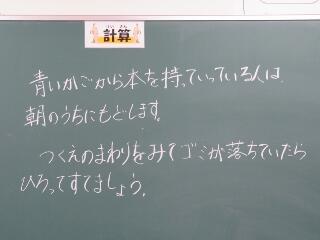 計算
青いかごから本を持っていっている人は、
朝のうちにもどします。
つくえのまわりをみてゴミが落ちていたら
ひろってすてましょう。